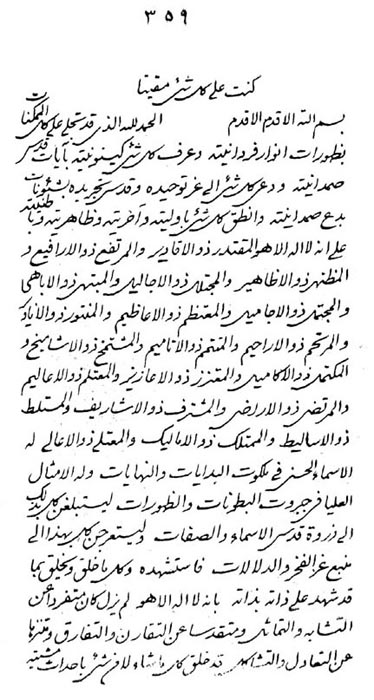 ٣٥٩
كنت على كل شئ مقيتا
بسم الله الاقدم الاقدم الحمد لله الذي قد تجلى على كل الممكنات
بظهورات انوار فردانيته وعرف كل شئ كينونيته بآيات قدس
صمدانيته ودعى كل شئ الى عز توحيده وقدس تجريده بشئونات
بدع صمدانيته وانطق كل شئ باوليته وآخريته وظاهريته وباطنيته
على انه لا اله الا هو المقتدر ذو الاقادير والمرتفع ذو الارافيع و
المظتهر ذو الاظاهير والمجتلل ذو الاجاليل والمبتهى ذو الاباهى
والمجتمل ذو الاجاميل والمعتظم ذو الاعاظيم والمنتور ذو الاناوير
والمرتحم ذو الاراحيم والمتتمم ذو الاتاميم والمشتمخ ذو الاشاميخ و
المكتمل ذو الاكاميل والمعتزز ذو الاعازيز والمعتلم ذو الاعاليم
والمرتضى ذو الاراضى والمشترف ذو الاشاريف والمستلط
ذو الاساليط والممتلك ذو الاماليك والمعتلى ذو الاعالى له
الاسماء الحسنى في ملكوت البدايات والنهايات وله الامثال
العليا في جبروت البطونات والظهورات ليستبلغن كل بذلك
الى ذروة قدس الاسماء والصفات وليستعرجن كل بهذا الى
منبع عز الفخر والدلالات فاستشهده وكل ما خلق ويخلق بما
قد شهد على ذاته بذاته بانه لا اله الا هو لم يزل كان متفردا عن
التشابه والتماثل ومتقدسا عن التقارن والتفارق ومتنزها
عن التعادل والتشاكل قد خلق كل ما شاء لا من شئ باحداث مشيته